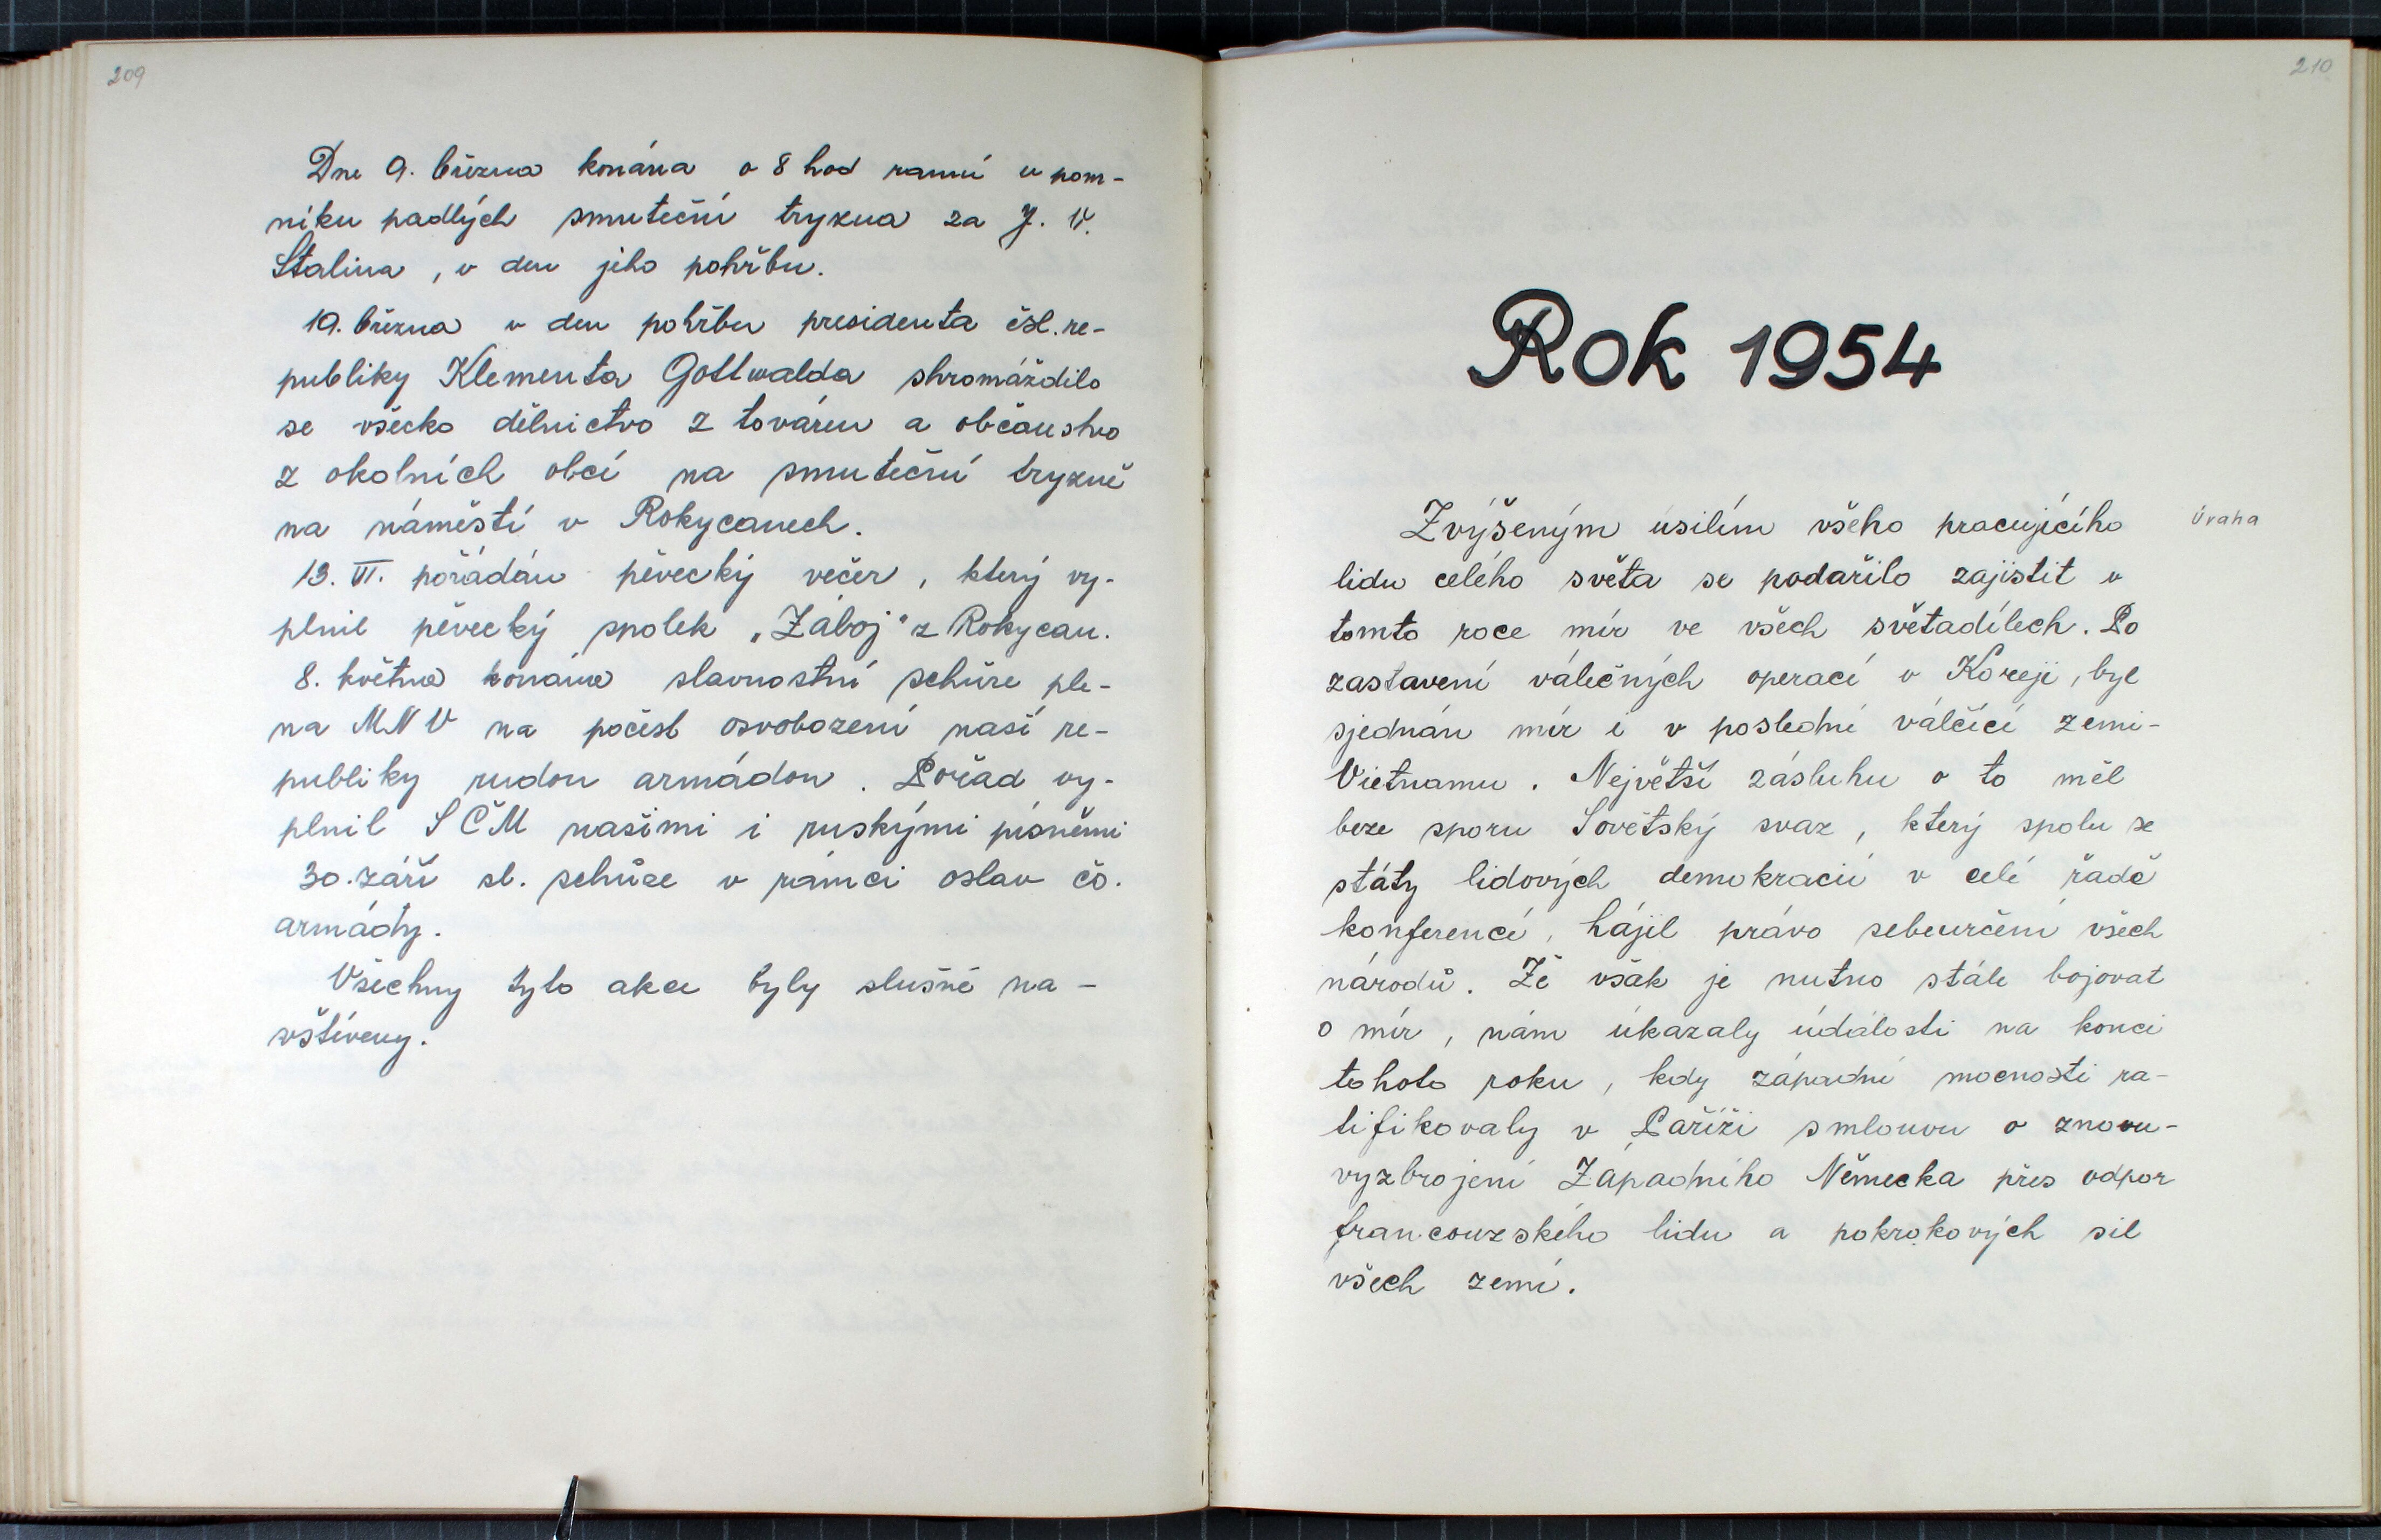 209
Dne 9. března konána o 8 hod ranní u pom-
níku padlých smuteční tryzna za J. V.
Stalina, v den jeho pohřbu.
19. března v den pohřbu presidenta čsl. re-
publiky Klementa Gottwalda shromáždilo
se všecko dělnictvo z továren a občanstvo
z okolních obcí na smuteční tryzně
na náměstí v Rokycanech.
13. VI. pořádán pěvecký večer, který vy-
plnil pěvecký spolek „Záboj" z Rokycan.
8. května konána slavnostní schůze ple-
na MNV na počest osvobození naší re-
publiky rudou armádou. Pořad vy-
plnil SČM našimi i ruskými písněmi
30. září sl. schůze v rámci oslav čs.
armády.
Všechny tyto akce byly slušně na-
vštíveny.
210
Rok 1954
Úvaha
Zvýšeným úsilím všeho pracujícího
lidu celého světa se podařilo zajistit v
tomto roce mír ve všech světadílech. Po
zastavení válečných operací v Koreji, byl
sjednán mír i v poslední válčící zemi-
Vietnamu. Největší zásluhu o to měl
beze sporu Sovětský svaz, který spolu se
státy lidových demokracií v celé řadě
konferencí, hájil právo sebeurčení všech
národů. Že však je nutno stále bojovat
o mír, nám úkazaly údálosti na konci
tohoto roku, kdy západní mocnosti ra-
tifikovaly v Paříži smlouvu o znovu-
vyzbrojení Západního Německa přes odpor
francouzského lidu a pokrokových sil
všech zemí.